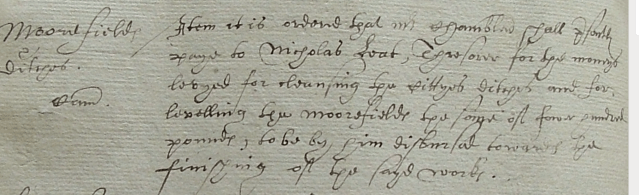 Moorefields
ditches.
Cam.
Item it is ordered that mr Chamblen shall psently
paye to Nicholas Leat, Thresorer for the moneys
levyed for cleansing the Cittyes ditches and for
levelling the moorefields the some of fower hundred
pounds, to be by him disbursed towards the
finishing of the sayd works.